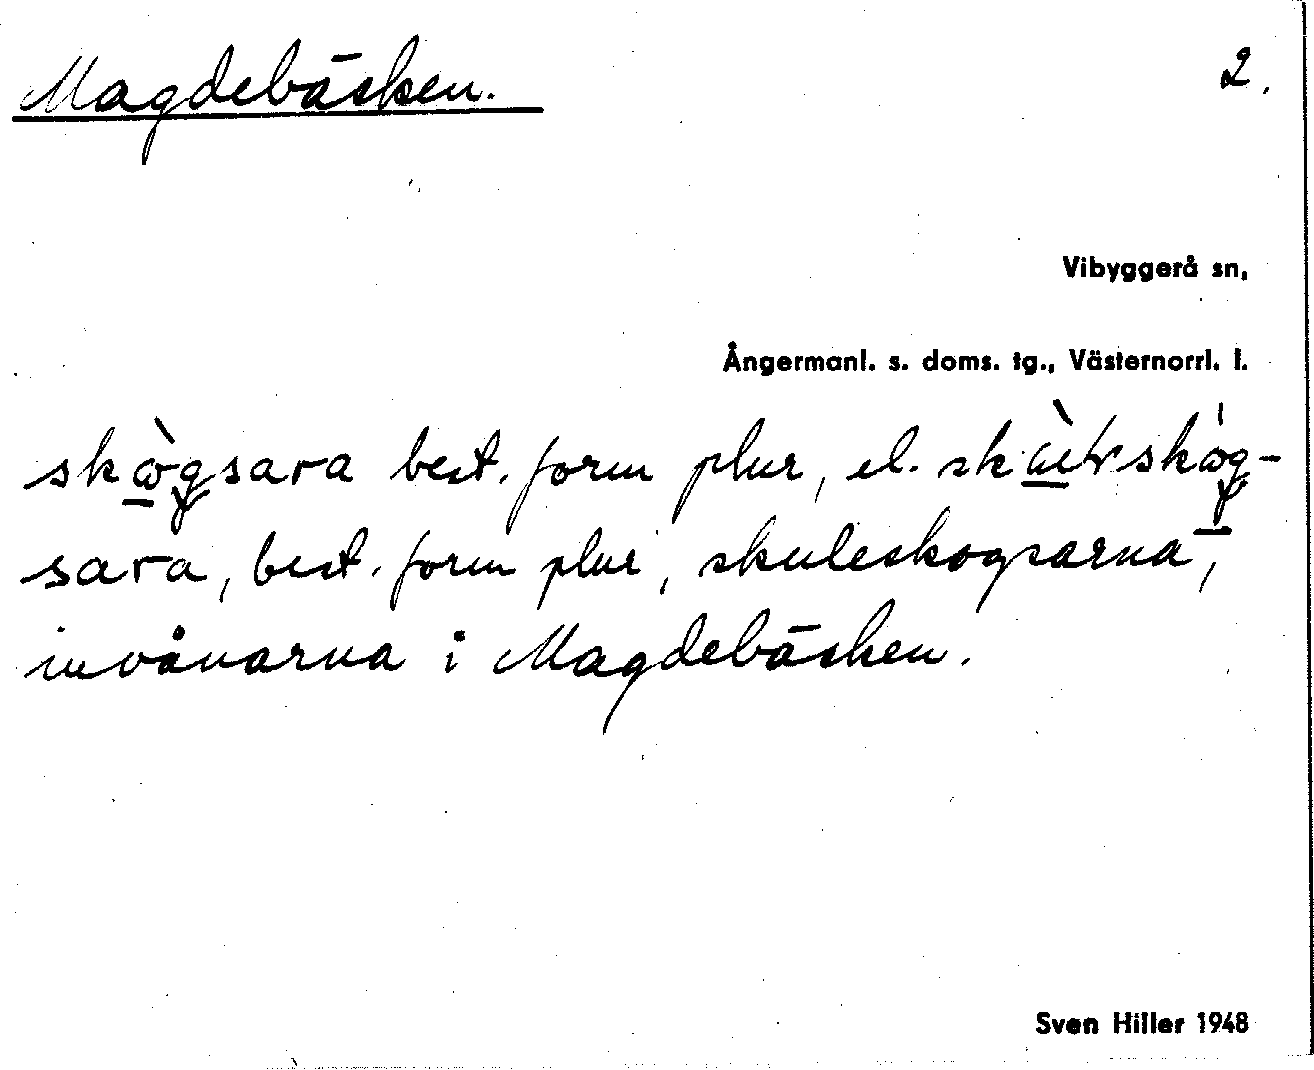 Magdebäcken. 2.
Vibyggerå sn,
Ångermanl. s. doms. tg., Västernorrl. l.
skògsara best. form plur, el.
sara, best. form plur, skuleskogsarna,
invånarna i Magdebäcken.
Sven Hiller 1948